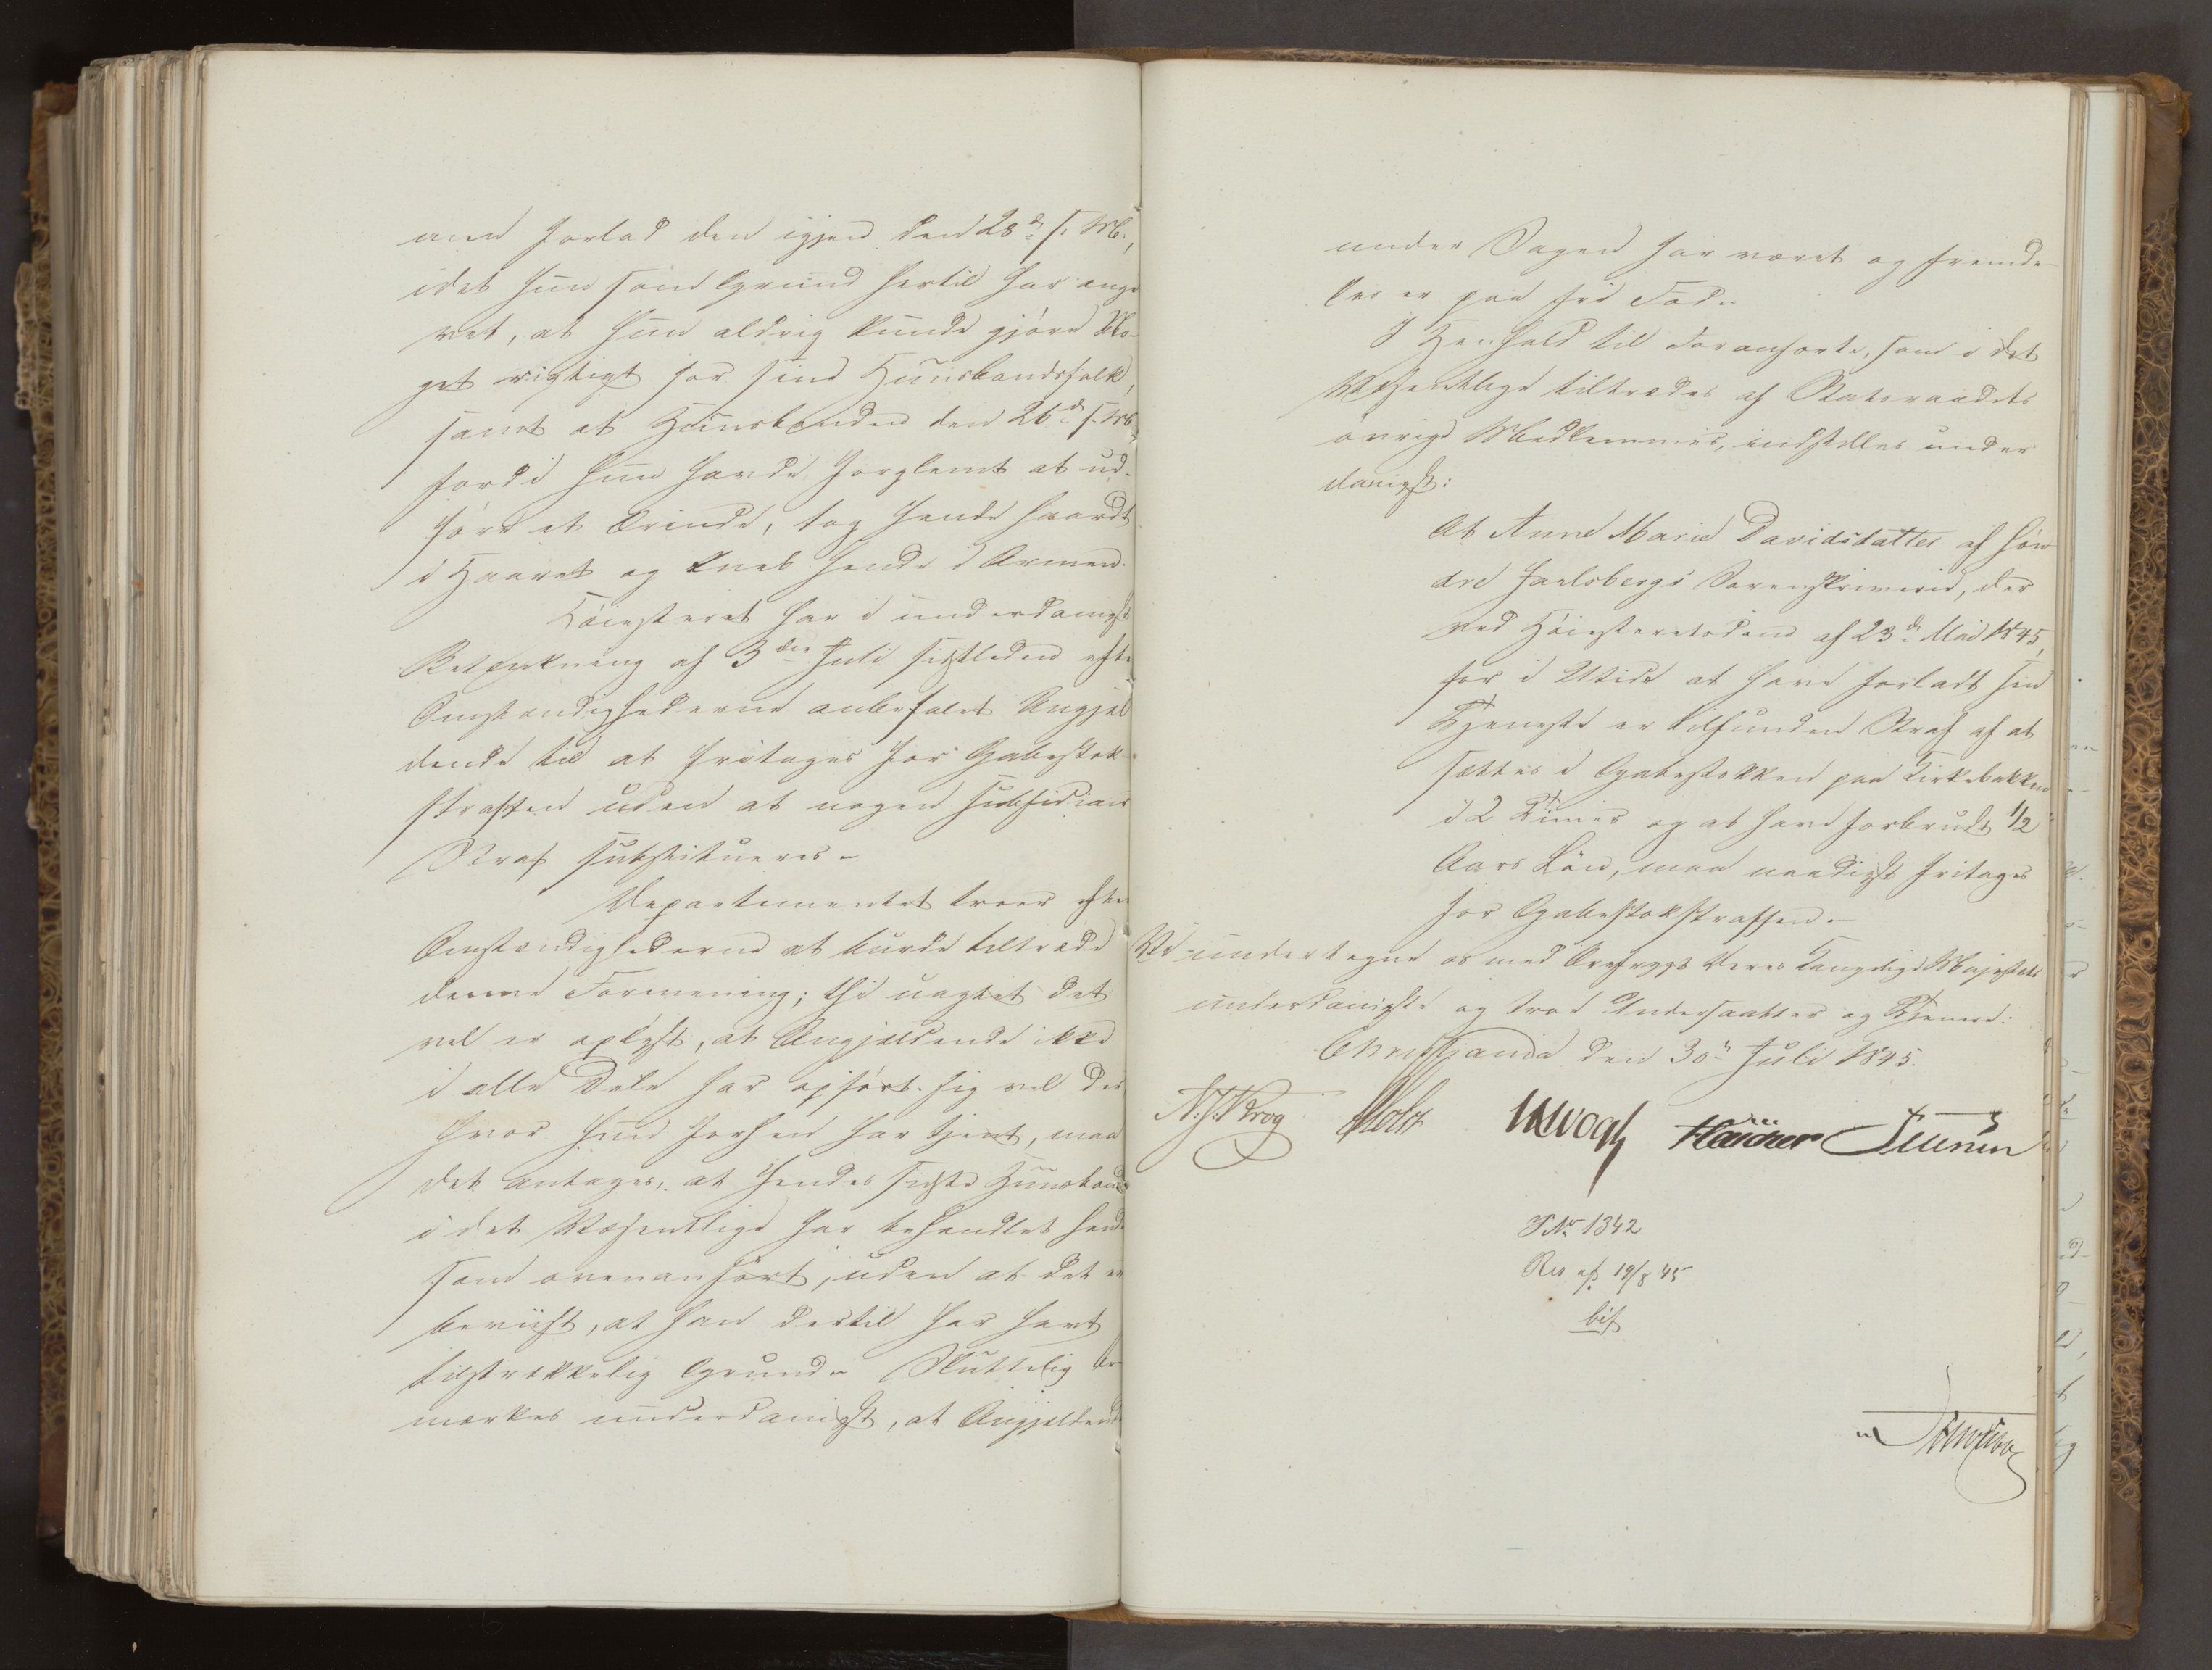 men forlod den igjen den 28d s. M.,
idet hun som Grund hertil har angi
vet, at hun aldrig kunde gjøre No-
get rigtigt for sine Huusbondsfolk,
samt at Huusbonden den 26d s. M.
fordi hun havde forglemt at ud-
føre et Ærinde, tog hende haardt
i Haaret og kneb hende i Armen.
Høiesteret har i underdanigst
Betænkning af 3die Juli sidstleden efter
Omstændighederne anbefalet Angjæl
dende til at fritages for Gabestok-
straffen uden at nogen subsidiair
Straf substitueres.-
Departementet troer efter
Omstændighederne at burde tiltræde
denne Formening; thi uagtet det
vel er oplyst, at Angjældende ikke
i alle Dele har opført sig vel der,
hvor hun forhen har tjent, maa
det antages, at hendes sidste Huusbond
i det Væsentlige har behandlet hende
som ovenanført, uden at det er
beviist, at han dertil har havt
tilstrækkelig Grund.- Sluttelig be-
mærkes underdanigst, at Angjældende
under Sagen har været og fremde
les er paa fri Fod.-
I Henhold til Foranførte, som i det
Væsentlige tiltrædes af Statsraadets
øvrige Medlemmer, indstilles under
danigst:
At Anne Marie Davidsdatter af Søn
dre Jarlsbergs Sorenskriverie, der
ved Høiesteretsdom af 23d Mai 1845,
for i Utide at have forladt sin
Tjeneste er tilfunden Straf af at
sættes i Gabestokken paa Kirkebakken
i 2 Timer og at have forbrudt 1/2
Aars Løn, maa naadigst fritages
for Gabestokstraffen.-
Vi undertegne os med Ærefrygt Deres Kongelige Majestæts
underdanigste og troe Undersaatter og Tjenere:
Christiania den 30te Juli 1845.
N. J. Krog Holst Vogt
J No 1342
Res af 19/8 45
bif